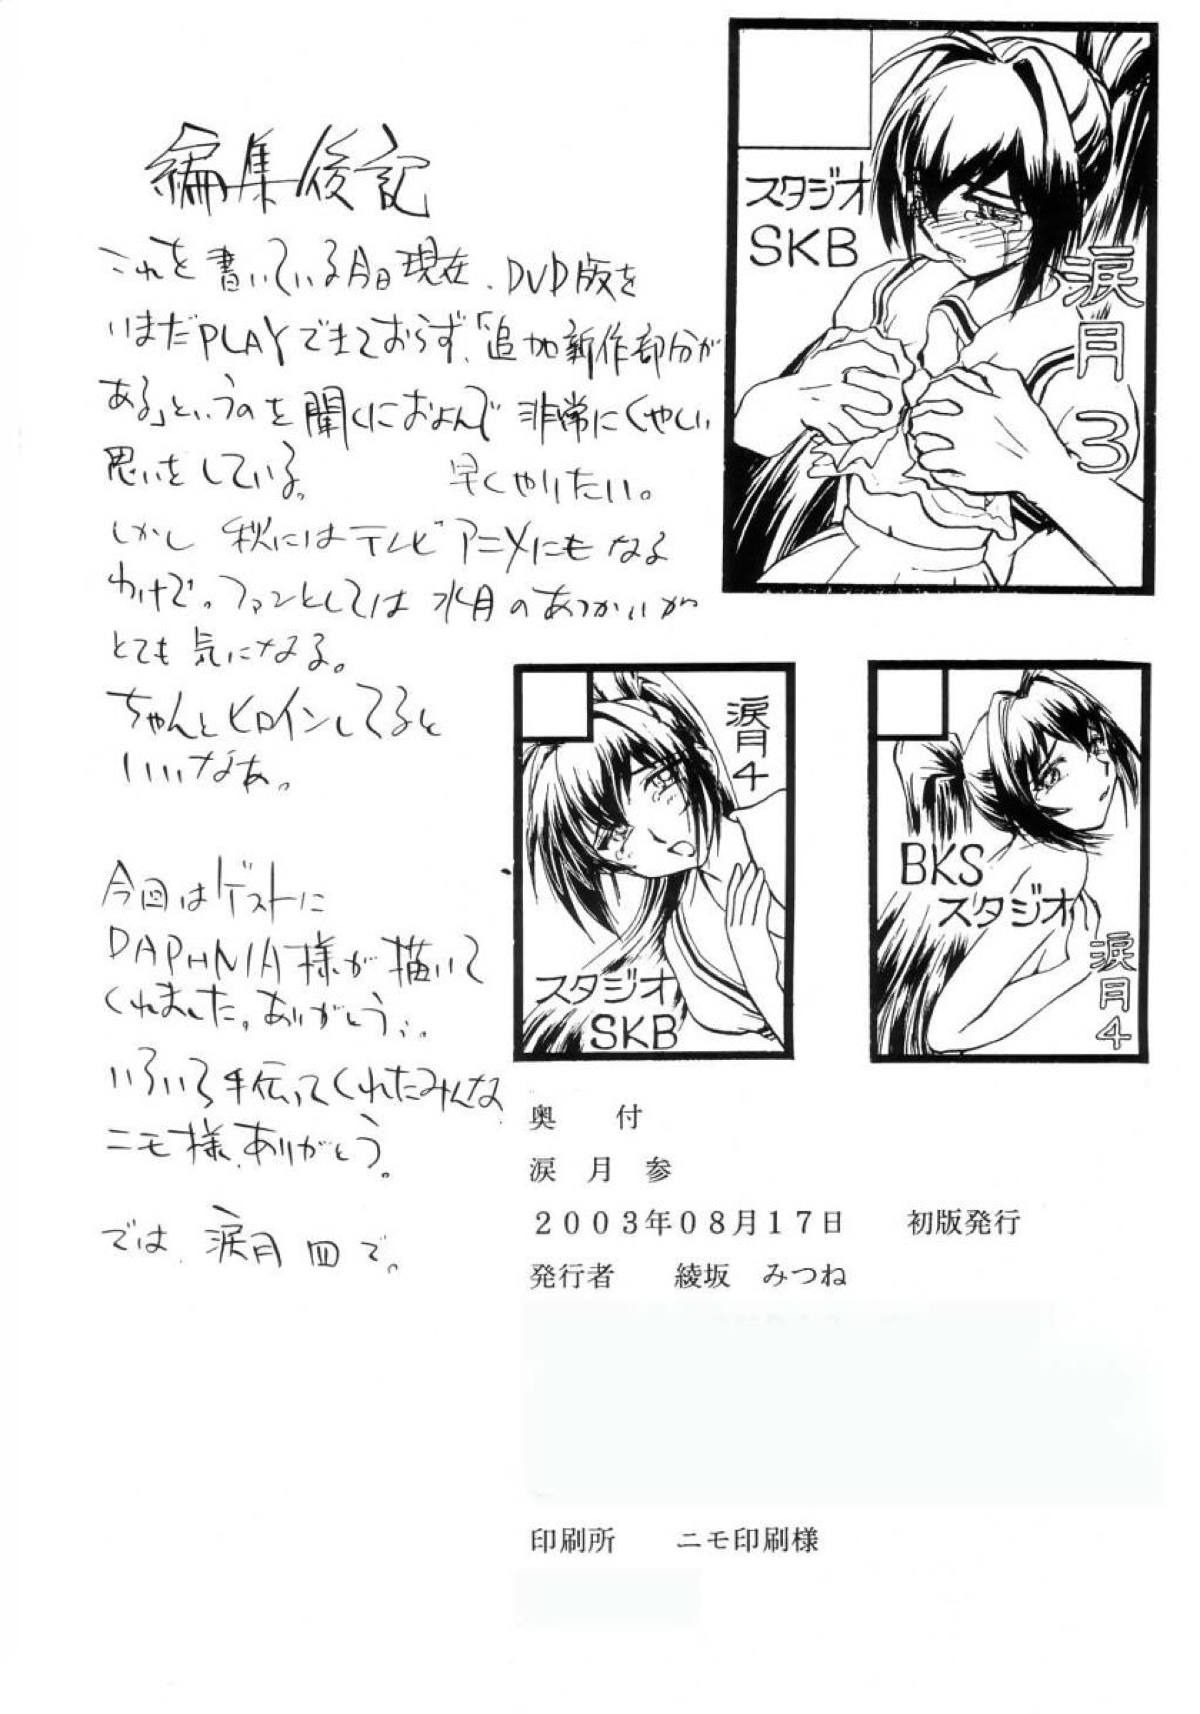 編集後記
これを書いている今日現在、DVD版を
いまだPLAYできておらず、「追加新作部分が
ある」というのを聞くにおよんで非常にくやしい
思いをしている。 早くやりたい。
しかし 秋にはテレビアニメにもなる
わけで。ファンとしては水月のあつかいが
とても気になる。
ちゃんとヒロインしてると
いいなあ。
今回はゲストに
DAPHNIA様が描いて
くれました。ありがとう
いろいろ手伝ってくれたみんな
ニモ様、ありがとう。
では、涙月四で。
スタジオ
SKB
涙月3
涙月4
スタジオ
SKB
BKS
スタジオ
涙月4
奥 付
涙 月 参
2003年08月17日 初版発行
発行者 綾坂 みつね
印刷所 ニモ印刷様